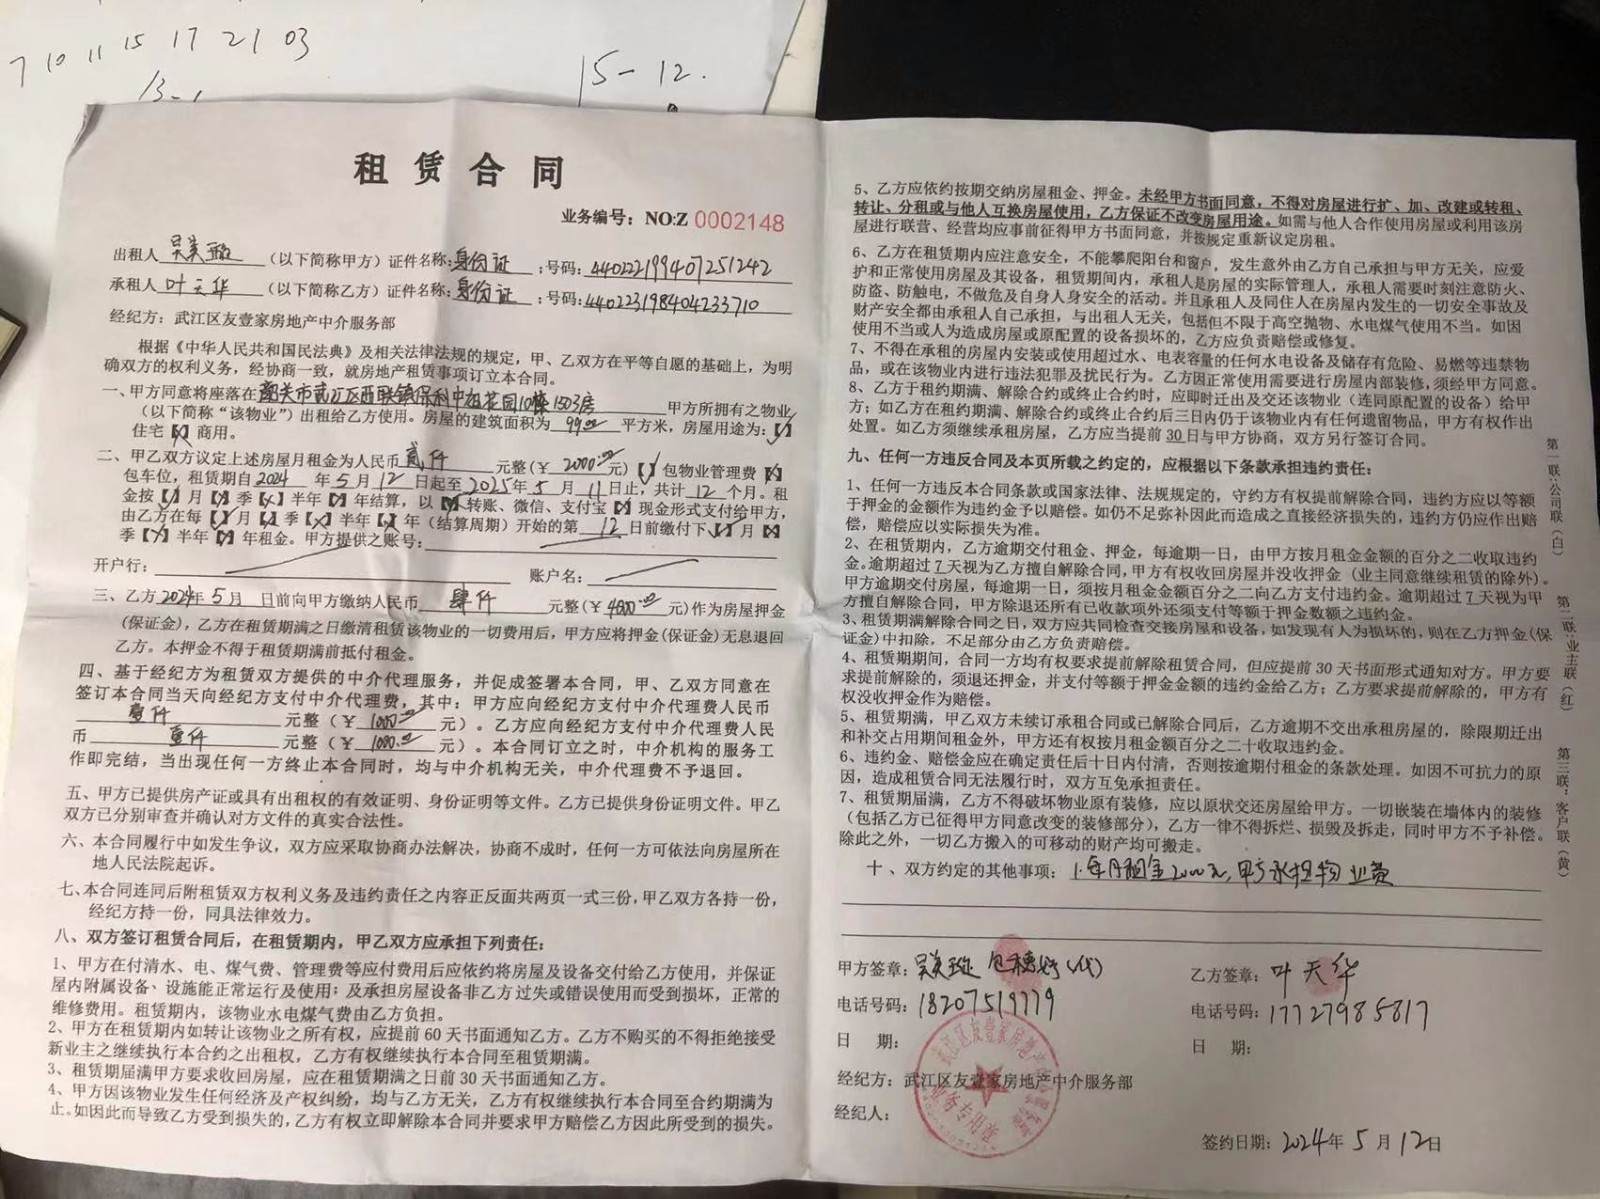 7 10 11 15 17 21 03
15-12.
租赁合同
业务编号：NO:Z 0002148
出租人 吴美璇 （以下简称甲方）证件名称：身份证 ；号码：440222199407251242
承租人 叶天华 （以下简称乙方）证件名称：身份证 ；号码：440223198404233710
经纪方：武江区友壹家房地产中介服务部
根据《中华人民共和国民法典》及相关法律法规的规定，甲、乙双方在平等自愿的基础上，为明
确双方的权利义务，经协商一致，就房地产租赁事项订立本合同。
一、甲方同意将座落在 韶关市武江区西联镇保利中祖花园10幢1503房 甲方所拥有之物业
（以下简称“该物业”）出租给乙方使用。房屋的建筑面积为 99.00 平方米，房屋用途为：【✓】
住宅【×】商用。
二、甲乙双方议定上述房屋月租金为人民币 贰仟 元整(￥ 2000.00 元)【✓】包物业管理费【×】
包车位，租赁期自2024 年 5 月 12 日起至 2025年 5 月 11日止，共计 12 个月。租
金按【✓】月【×】季【×】半年【×】年结算，以【×】转账、微信、支付宝【×】现金形式支付给甲方，
由乙方在每【✓】月【×】季【×】半年【×】年（结算周期）开始的第 12 日前缴付下【✓】月【×】
季【×】半年【×】年租金。甲方提供之账号：
开户行： 账户名：
三、乙方 2024年 5月 日前向甲方缴纳人民币 肆仟 元整(￥ 4000.00 元)作为房屋押金
(保证金)，乙方在租赁期满之日缴清租赁该物业的一切费用后，甲方应将押金(保证金)无息退回
乙方。本押金不得于租赁期满前抵付租金。
四、基于经纪方为租赁双方提供的中介代理服务，并促成签署本合同，甲、乙双方同意在
签订本合同当天向经纪方支付中介代理费，其中：甲方应向经纪方支付中介代理费人民币
壹仟 元整（￥ 1000.00 元）。乙方应向经纪方支付中介代理费人民
币 壹仟 元整（￥ 1000.00 元）。本合同订立之时，中介机构的服务工
作即完结，当出现任何一方终止本合同时，均与中介机构无关，中介代理费不予退回。
五、甲方已提供房产证或具有出租权的有效证明、身份证明等文件。乙方已提供身份证明文件。甲乙
双方已分别审查并确认对方文件的真实合法性。
六、本合同履行中如发生争议，双方应采取协商办法解决，协商不成时，任何一方可依法向房屋所在
地人民法院起诉。
七、本合同连同后附租赁双方权利义务及违约责任之内容正反面共两页一式三份，甲乙双方各持一份，
经纪方持一份，同具法律效力。
八、双方签订租赁合同后，在租赁期内，甲乙双方应承担下列责任：
1、甲方在付清水、电、煤气费、管理费等应付费用后应依约将房屋及设备交付给乙方使用，并保证
屋内附属设备、设施能正常运行及使用；及承担房屋设备非乙方过失或错误使用而受到损坏，正常的
维修费用。租赁期内，该物业水电煤气费由乙方负担。
2、甲方在租赁期内如转让该物业之所有权，应提前60天书面通知乙方。乙方不购买的不得拒绝接受
新业主之继续执行本合约之出租权，乙方有权继续执行本合同至租赁期满。
3、租赁期届满甲方要求收回房屋，应在租赁期满之日前30天书面通知乙方。
4、甲方因该物业发生任何经济及产权纠纷，均与乙方无关，乙方有权继续执行本合同至合约期满为
止。如因此而导致乙方受到损失的，乙方有权立即解除本合同并要求甲方赔偿乙方因此所受到的损失。
5、乙方应依约按期交纳房屋租金、押金。未经甲方书面同意，不得对房屋进行扩、加、改建或转租、
转让、分租或与他人互换房屋使用，乙方保证不改变房屋用途。如需与他人合作使用房屋或利用该房
屋进行联营、经营均应事前征得甲方书面同意，并按规定重新议定房租。
6、乙方在租赁期内应注意安全，不能攀爬阳台和窗户，发生意外由乙方自己承担与甲方无关，应爱
护和正常使用房屋及其设备，租赁期间内，承租人是房屋的实际管理人，承租人需要时刻注意防火、
防盗、防触电，不做危及自身人身安全的活动。并且承租人及同住人在房屋内发生的一切安全事故及
财产安全都由承租人自己承担，与出租人无关，包括但不限于高空抛物、水电煤气使用不当。如因
使用不当或人为造成房屋或原配置的设备损坏的，乙方应负责赔偿或修复。
7、不得在承租的房屋内安装或使用超过水、电表容量的任何水电设备及储存有危险、易燃等违禁物
品，或在该物业内进行违法犯罪及扰民行为。乙方因正常使用需要进行房屋内部装修，须经甲方同意。
8、乙方于租约期满、解除合约或终止合约时，应即时迁出及交还该物业（连同原配置的设备）给甲
方；如乙方在租约期满、解除合约或终止合约后三日内仍于该物业内有任何遗留物品，甲方有权作出
处置。如乙方须继续承租房屋，乙方应当提前30日与甲方协商，双方另行签订合同。
九、任何一方违反合同及本页所载之约定的，应根据以下条款承担违约责任：
1、任何一方违反本合同条款或国家法律、法规规定的，守约方有权提前解除合同，违约方应以等额
于押金的金额作为违约金予以赔偿。如仍不足弥补因此而造成之直接经济损失的，违约方仍应作出赔
偿，赔偿应以实际损失为准。
2、在租赁期内，乙方逾期交付租金、押金，每逾期一日，由甲方按月租金金额的百分之二收取违约
金。逾期超过7天视为乙方擅自解除合同，甲方有权收回房屋并没收押金（业主同意继续租赁的除外）。
甲方逾期交付房屋，每逾期一日，须按月租金金额百分之二向乙方支付违约金。逾期超过7天视为甲
方擅自解除合同，甲方除退还所有已收款项外还须支付等额于押金数额之违约金。
3、租赁期满解除合同之日，双方应共同检查交接房屋和设备，如发现有人为损坏的，则在乙方押金(保
证金)中扣除，不足部分由乙方负责赔偿。
4、租赁期期间，合同一方均有权要求提前解除租赁合同，但应提前30天书面形式通知对方。甲方要
求提前解除的，须退还押金，并支付等额于押金金额的违约金给乙方；乙方要求提前解除的，甲方有
权没收押金作为赔偿。
5、租赁期满，甲乙双方未续订承租合同或已解除合同后，乙方逾期不交出承租房屋的，除限期迁出
和补交占用期间租金外，甲方还有权按月租金额百分之二十收取违约金。
6、违约金、赔偿金应在确定责任后十日内付清，否则按逾期付租金的条款处理。如因不可抗力的原
因，造成租赁合同无法履行时，双方互免承担责任。
7、租赁期届满，乙方不得破坏物业原有装修，应以原状交还房屋给甲方。一切嵌装在墙体内的装修
（包括乙方已征得甲方同意改变的装修部分），乙方一律不得拆烂、损毁及拆走，同时甲方不予补偿。
除此之外，一切乙方搬入的可移动的财产均可搬走。
十、双方约定的其他事项：1.每月租金2000元，甲方承担物业费
甲方签章：吴美璇 (代)
电话号码：18207519779
日 期：
乙方签章：叶天华
电话号码：17727985817
日 期：
经纪方：武江区友壹家房地产中介服务部
经纪人：
签约日期：2024年 5 月 12日
武江区友壹家房地产中介服务部
业务专用章
第一联：公司联（白）
第二联：业主联（红）
第三联：客户联（黄）